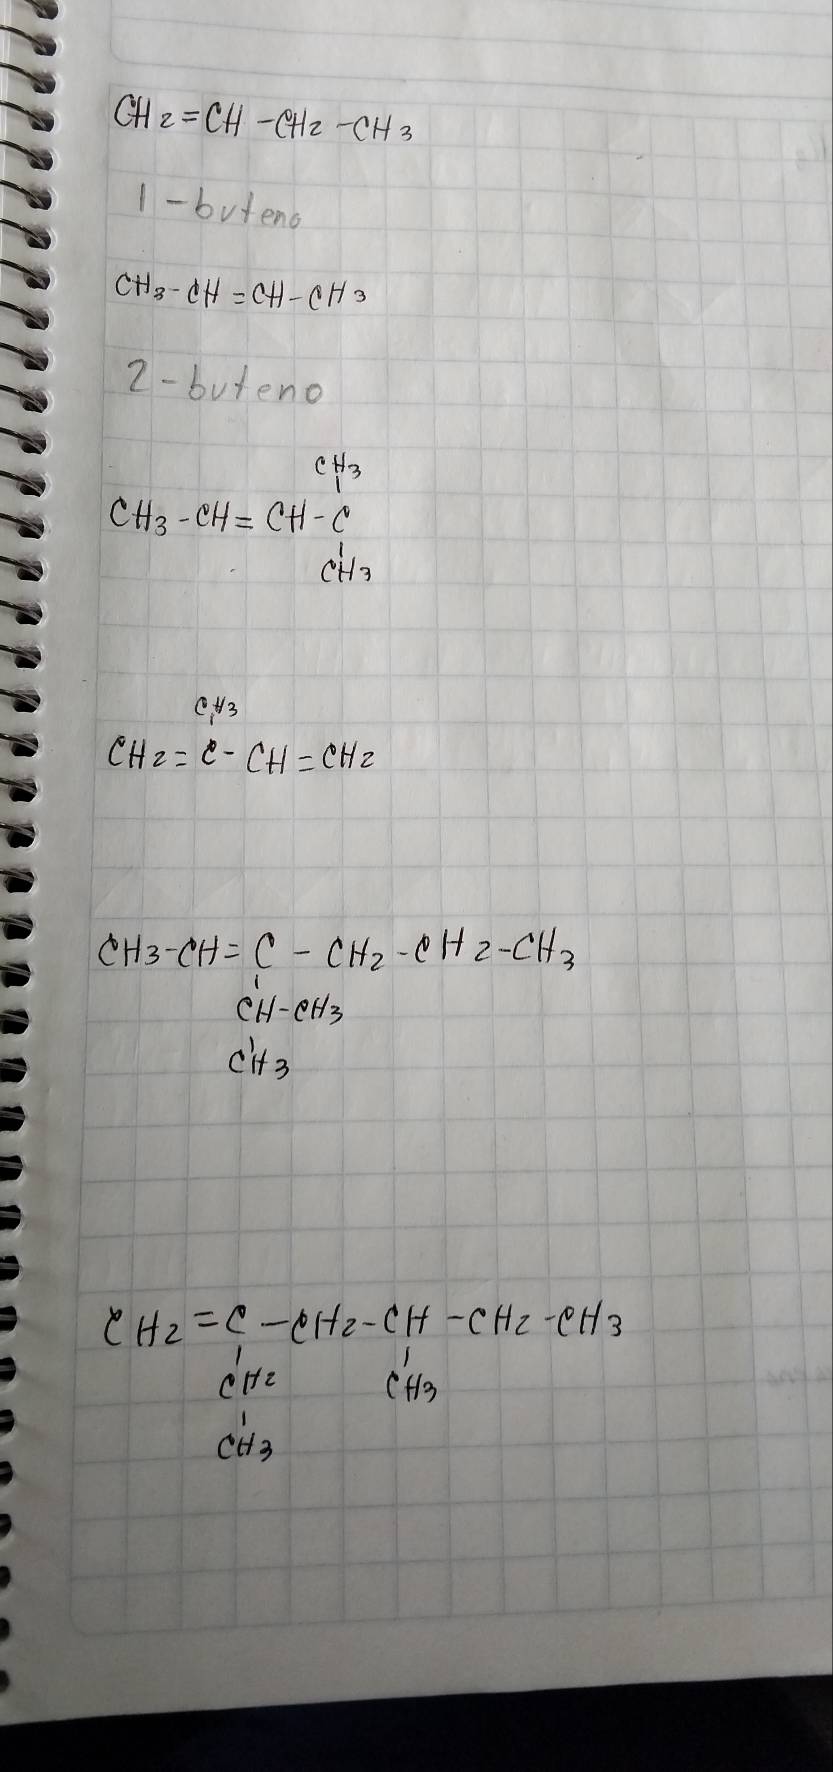 CH2=CH-CH2-CH3
1-buteno
CH3-CH=CH-CH3
2-buteno
CH3
CH3-CH=CH-C
CH3
CH3
CH2=C-CH=CH2
CH3-CH=C-CH2-CH2-CH3
CH-CH3
CH3
CH2=C-CH2-CH-CH2-CH3
CH2 CH3
CH3